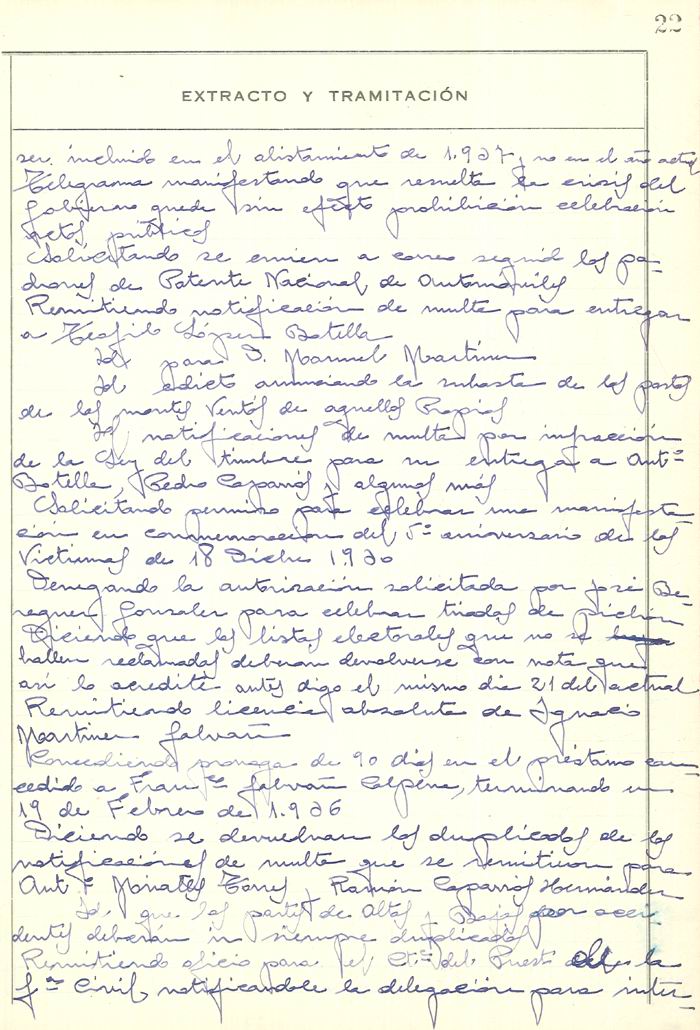 22
EXTRACTO Y TRAMITACIÓN
ser incluido en el alistamiento de 1.937 y no en el año actual
Telegrama manifestando que resuelta la crisis del
Gobierno quede sin efecto prohibición celebración
actos públicos
Solicitando se envien a correo seguido los pa-
drones de Patente Nacional de Automóviles
Remitiendo notificación de multa para entregar
a Teofilo López Botella
Id para D. Manuel Martinez
Id edicto anunciando la subasta de los pastos
de los montes Ventós de aquellos Propios
Id notificaciones de multa por infracción
de la Ley del timbre para su entrega a Antº
Botella, Pedro Caparrós y algunos más
Solicitando permiso para celebrar una manifesta-
ción en conmemoracion del 5º aniversario de las
Victimas de 18 Dicbre 1.930
Denegando la autorización solicitada por José Be-
renguer Gonzalez para celebrar tiradas de pichón
Diciendo que las listas electorales que no se
hallen reclamadas deberan devolverse con nota que
así lo acredite antes digo el mismo dia 21 del actual
Remitiendo licencia absoluta de Ignacio
Martinez Galvañ
Concediendo prorroga de 90 dias en el préstamo con-
cedido a Franco Galvañ Calpena, terminando en
19 de Febrero de 1.936
Diciendo se devuelvan los duplicados de las
notificaciones de multa que se remitieron para
Ant º Miralles Torres y Ramón Caparrós Hernández
Id que los partes de Altas y Bajas por acci-
dentes deberán ir siempre duplicados
Remitiendo oficio para el Cte del Puesto de la
Gª Civil, notificandole la delegación para inter-